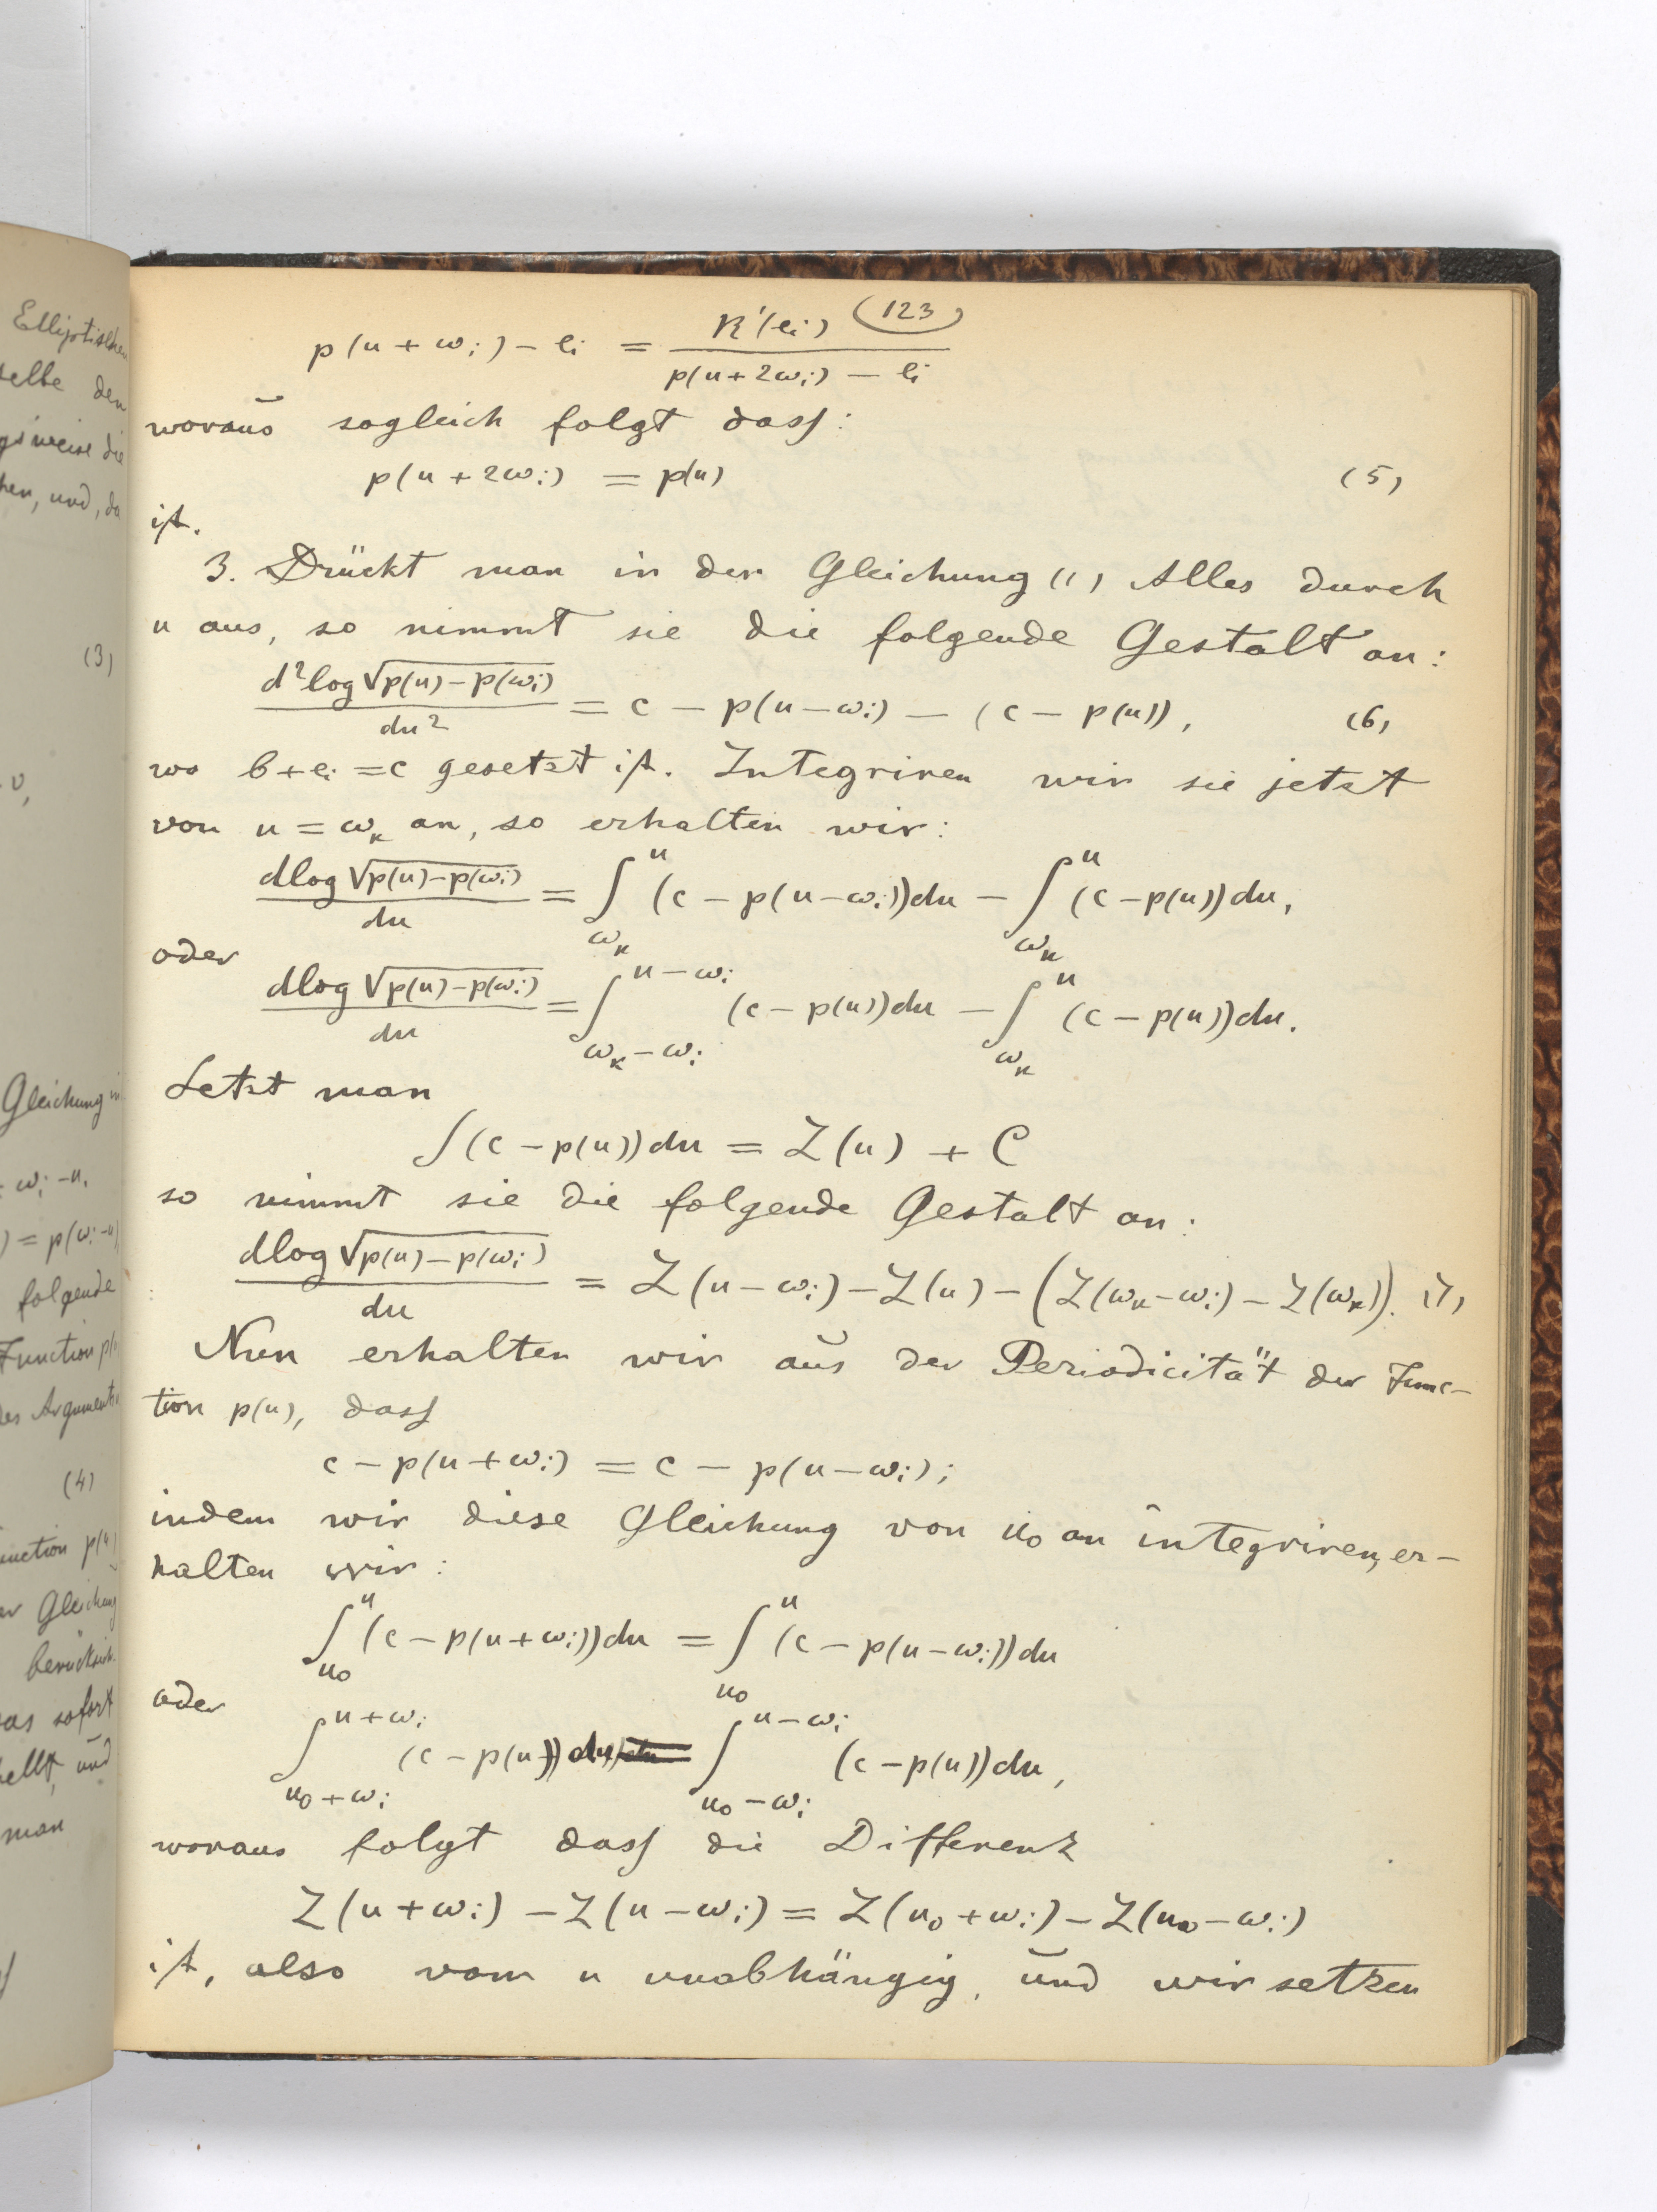 Elliptischen
selbe den
gsweise die
hen, und, da
(3)
Gleichung in
= ωi – u.
) = p(ωi – u)
folgende
Function p(
des Argument
(4)
unction p(u)
er Gleichung
berücksich.
as sofort
ellt, und
man
(123)
p(u + ωi) – ei = R'(ei) / (p(u + 2ωi) – ei)
woraus sogleich folgt dass:
p(u + 2ωi) = p(u) (5)
ist.
3. Drückt man in der Gleichung (1) Alles durch
u aus, so nimmt sie die folgende Gestalt an:
d² log √(p(u) – p(ωi)) / du² = c – p(u – ωi) – (c – p(u)), (6)
wo b + ei = c gesetzt ist. Integriren wir sie jetzt
von u = ωk an, so erhalten wir:
dlog √(p(u) – p(ωi)) / du = ∫_ωk^u (c – p(u – ωi))du – ∫_ωk^u (c – p(u))du,
oder
dlog √(p(u) – p(ωi)) / du = ∫_{ωk – ωi}^{u – ωi} (c – p(u))du – ∫_ωk^u (c – p(u))du.
Setzt man
∫(c – p(u))du = Z(u) + C
so nimmt sie die folgende Gestalt an:
dlog √(p(u) – p(ωi)) / du = Z(u – ωi) – Z(u) – (Z(ωk – ωi) – Z(ωk)). (7)
Nun erhalten wir aus der Periodicität der Func–
tion p(u), dass
c – p(u + ωi) = c – p(u – ωi);
indem wir diese Gleichung von u0 an integriren, er–
halten wir:
∫_u0^u (c – p(u + ωi))du = ∫_u0^u (c – p(u – ωi))du
oder
∫_{u0 + ωi}^{u + ωi} (c – p(u))du = ∫_{u0 – ωi}^{u – ωi} (c – p(u))du,
woraus folgt dass die Differenz
Z(u + ωi) – Z(u – ωi) = Z(u0 + ωi) – Z(u0 – ωi)
ist, also vom u unabhängig, und wir setzen